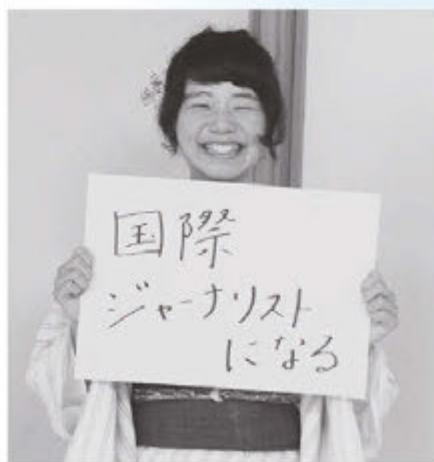 国際
ジャーナリスト
になる